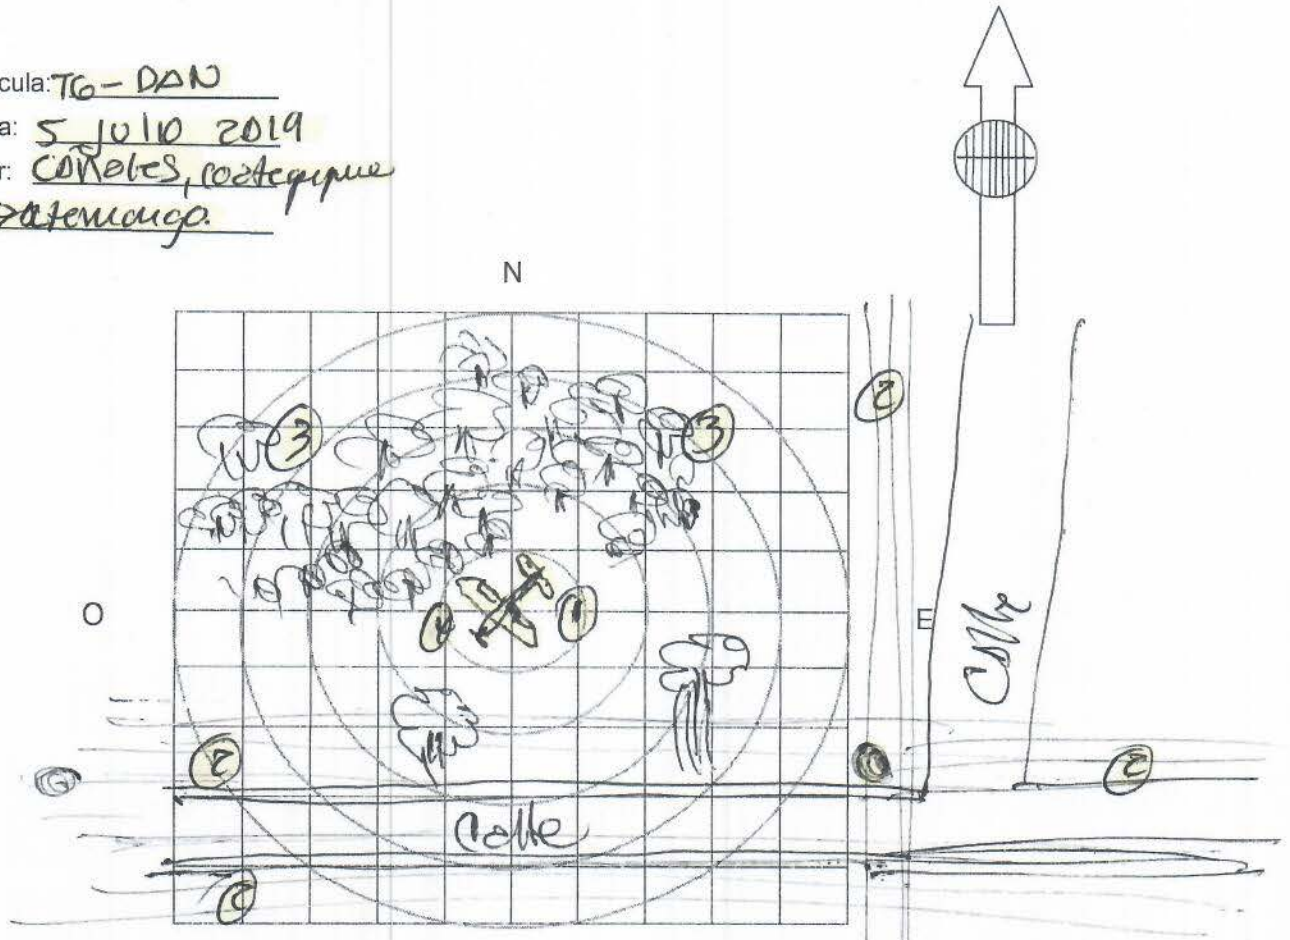 cula: TG - DAN
a: 5 julio 2019
r: Cañales, coatepeque
zatenango.
N
2
3
3
O
4
1
E
Calle
2
2
Calle
2